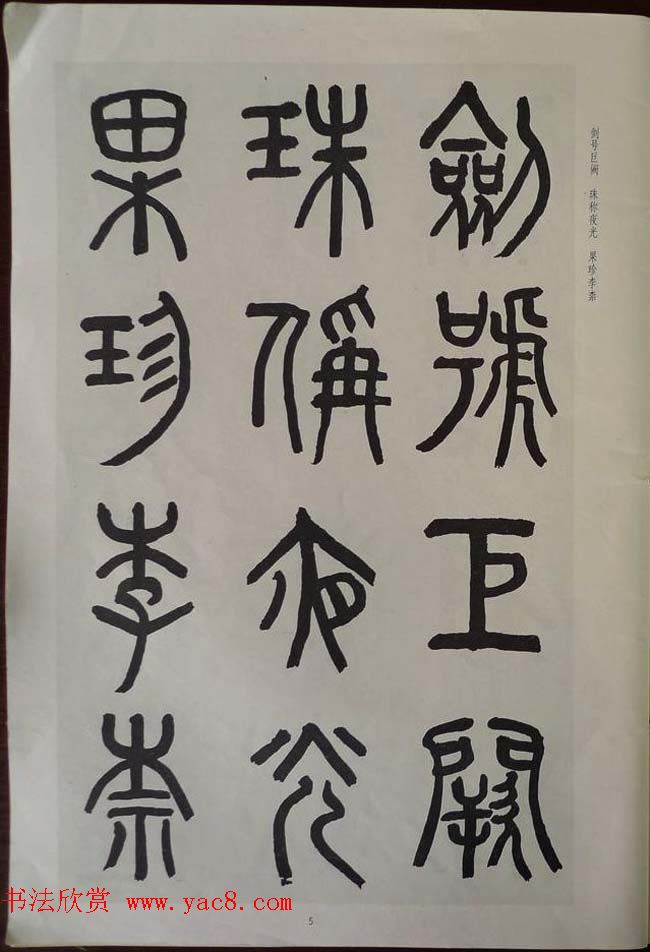 劍號巨闕
珠稱夜光
果珍李柰
剑号巨阙 珠称夜光 果珍李柰
书法欣赏 www.yac8.com
5